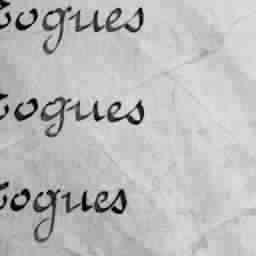 ogues
ogues
ogues